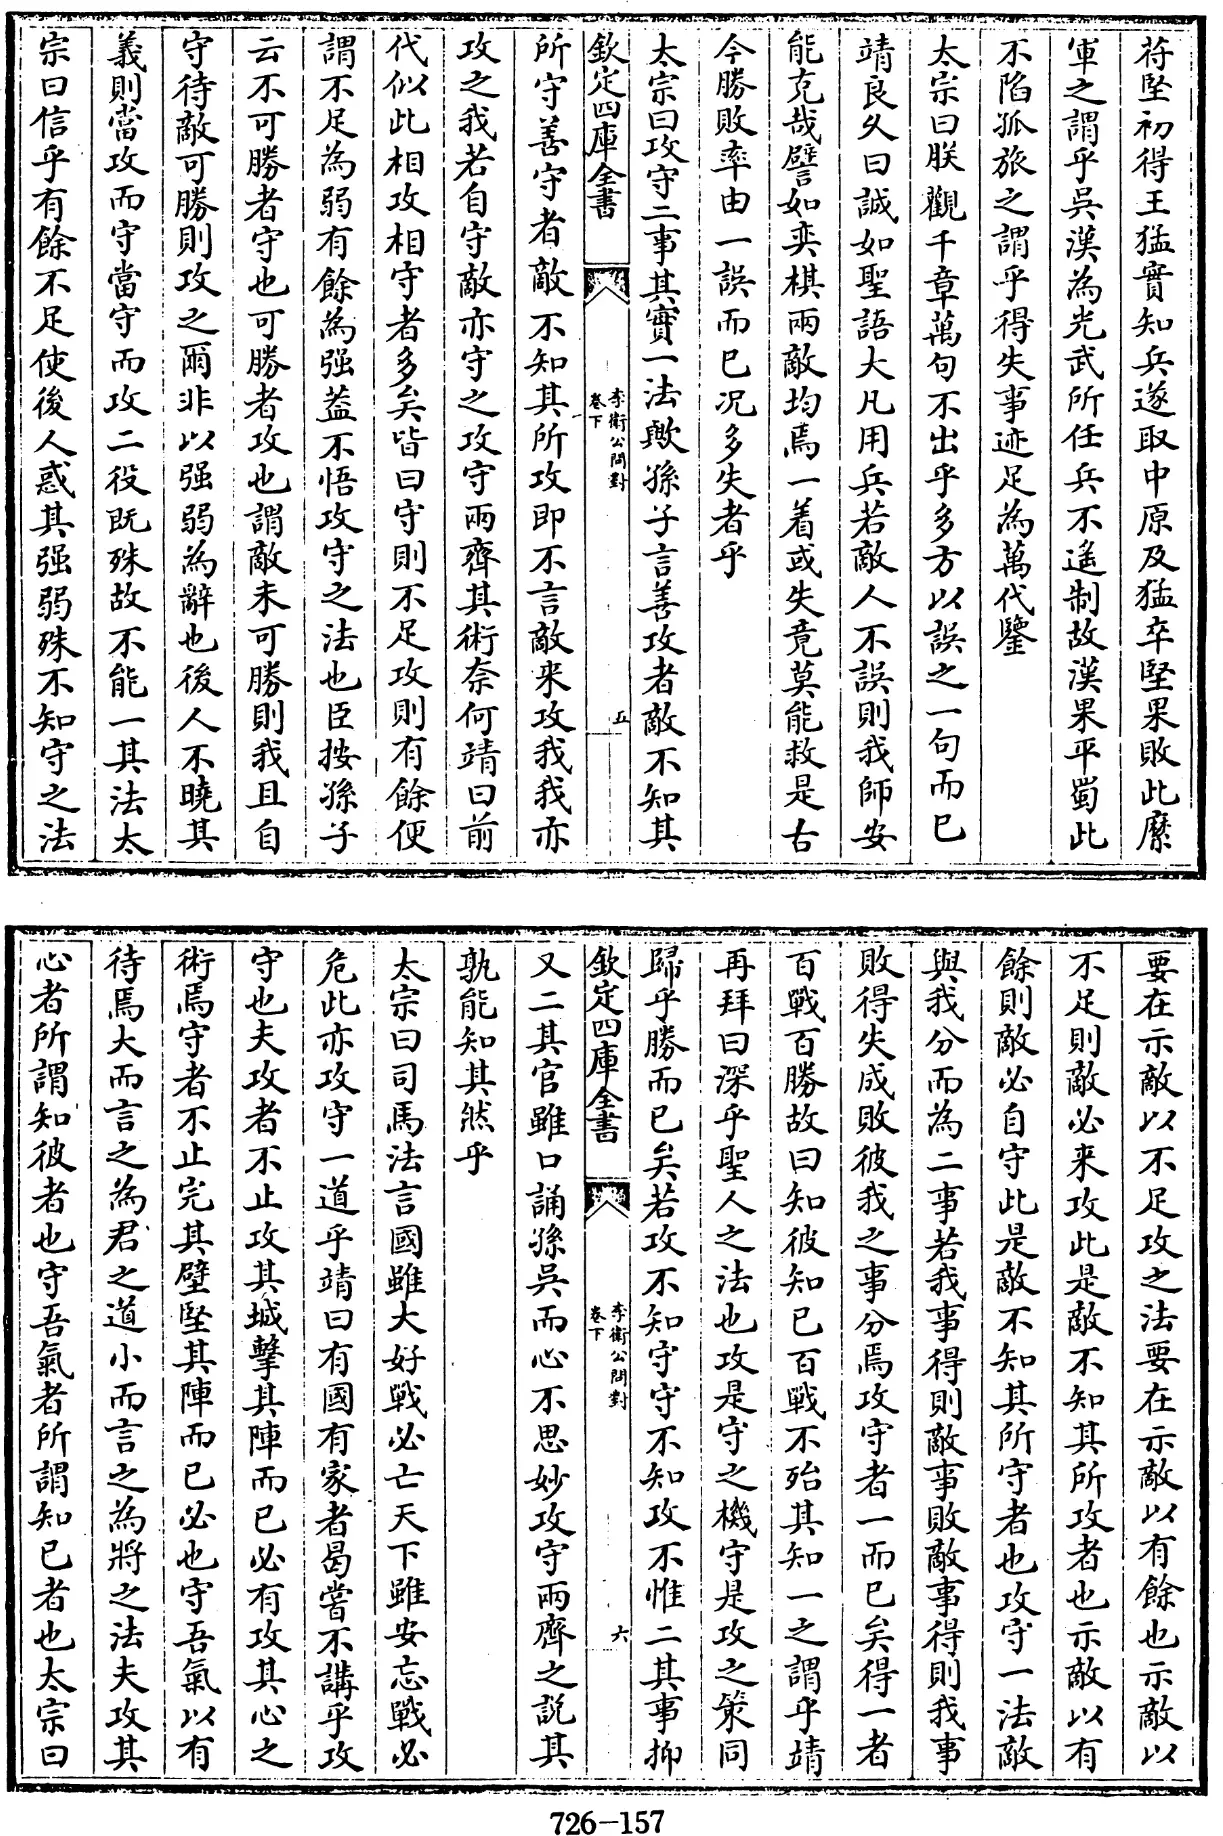 苻堅初得王猛實知兵遂取中原及猛卒堅果敗此縻
軍之謂乎吳漢為光武所任兵不遙制故漢果平蜀此
不陷孤旅之謂乎得失事迹足為萬代鑒
太宗曰朕觀千章萬句不出乎多方以誤之一句而已
靖良久曰誠如聖語大凡用兵若敵人不誤則我師安
能克哉譬如奕棋兩敵均焉一着或失竟莫能救是古
今勝敗率由一誤而已况多失者乎
太宗曰攻守二事其實一法歟孫子言善攻者敵不知其
欽定四庫全書
李衛公問對
卷下
五
所守善守者敵不知其所攻即不言敵來攻我我亦
攻之我若自守敵亦守之攻守兩齊其術奈何靖曰前
代似此相攻相守者多矣皆曰守則不足攻則有餘便
謂不足為弱有餘為强葢不悟攻守之法也臣按孫子
云不可勝者守也可勝者攻也謂敵未可勝則我且自
守待敵可勝則攻之爾非以强弱為辭也後人不曉其
義則當攻而守當守而攻二役既殊故不能一其法太
宗曰信乎有餘不足使後人惑其强弱殊不知守之法
要在示敵以不足攻之法要在示敵以有餘也示敵以
不足則敵必來攻此是敵不知其所攻者也示敵以有
餘則敵必自守此是敵不知其所守者也攻守一法敵
與我分而為二事若我事得則敵事敗敵事得則我事
敗得失成敗彼我之事分焉攻守者一而已矣得一者
百戰百勝故曰知彼知已百戰不殆其知一之謂乎靖
再拜曰深乎聖人之法也攻是守之機守是攻之策同
歸乎勝而已矣若攻不知守守不知攻不惟二其事抑
欽定四庫全書
李衛公問對
卷下
六
又二其官雖口誦孫吳而心不思妙攻守兩齊之説其
孰能知其然乎
太宗曰司馬法言國雖大好戰必亡天下雖安忘戰必
危此亦攻守一道乎靖曰有國有家者曷嘗不講乎攻
守也夫攻者不止攻其城擊其陣而已必有攻其心之
術焉守者不止完其壁堅其陣而已必也守吾氣以有
待焉大而言之為君之道小而言之為將之法夫攻其
心者所謂知彼者也守吾氣者所謂知已者也太宗曰
726-157